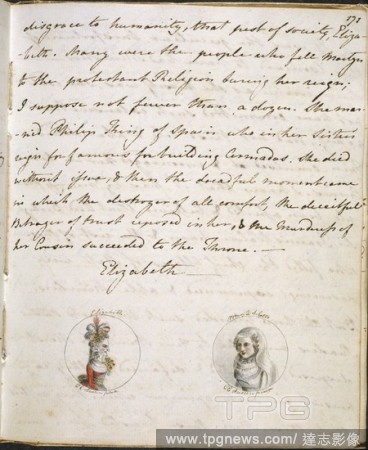 171
disgrace to humanity, that pest of society, Eliza-
beth. Many were the people who fell Martyrs
to the protestant Religion during her reign;
I suppose not fewer than a dozen. She mar-
ried Philip King of Spain who in her Sister's
reign for famous for building Armadas. She died
without issue, & then the dreadful moment came
in which the destroyer of all comfort, the deceitful
Betrayer of trust reposed in her, & the Murdress of
her Cousin succeeded to the Throne.—
Elizabeth—
TPG
www.tpgnews.com/達志影像